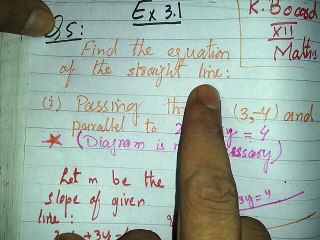 Q5:
Ex 3.1
K. Board
XII
Maths
Find the equation
of the straight line:
(i) Passing (3,-4) and
parallel to = 4
(Diagram is
Let m be the
slope of given
line:
3y=4